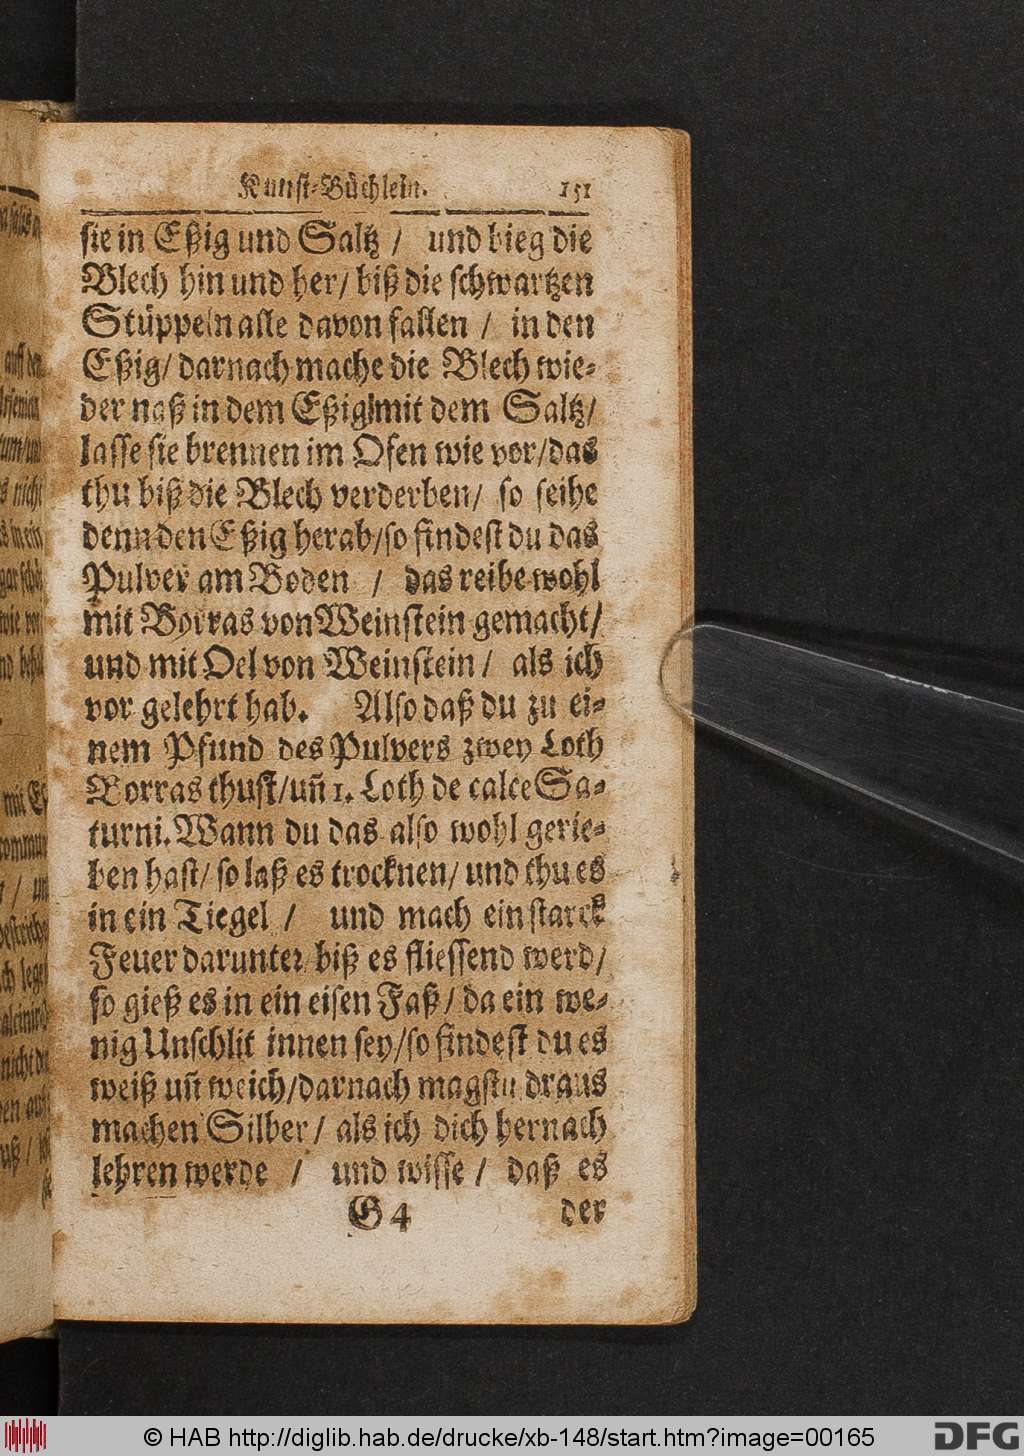 Kunst-Büchlein. 151
sie in Eßig und Saltz / und bieg die
Blech hin und her / biß die schwartzen
Stüppeln alle davon fallen / in den
Eßig / darnach mache die Blech wie-
der naß in dem Eßig mit dem Saltz /
lasse sie brennen im Ofen wie vor / das
thu biß die Blech verderben / so seihe
denn den Eßig herab / so findest du das
Pulver am Boden / das reibe wohl
mit Borras von Weinstein gemacht /
und mit Oel von Weinstein / als ich
vor gelehrt hab. Also daß du zu ei-
nem Pfund des Pulvers zwey Loth
Borras thust / uñ 1. Loth de calce Sa-
turni. Wann du das also wohl gerie-
ben hast / so laß es trocknen / und thu es
in ein Tiegel / und mach ein starck
Feuer darunter / biß es fliessend werd /
so gieß es in ein eisen Faß / da ein we-
nig Unschlit innen sey / so findest du es
weiß uñ weich / darnach magstu draus
machen Silber / als ich dich hernach
lehren werde / und wisse / daß es
G 4 der
© HAB http://diglib.hab.de/drucke/xb-148/start.htm?image=00165
DFG